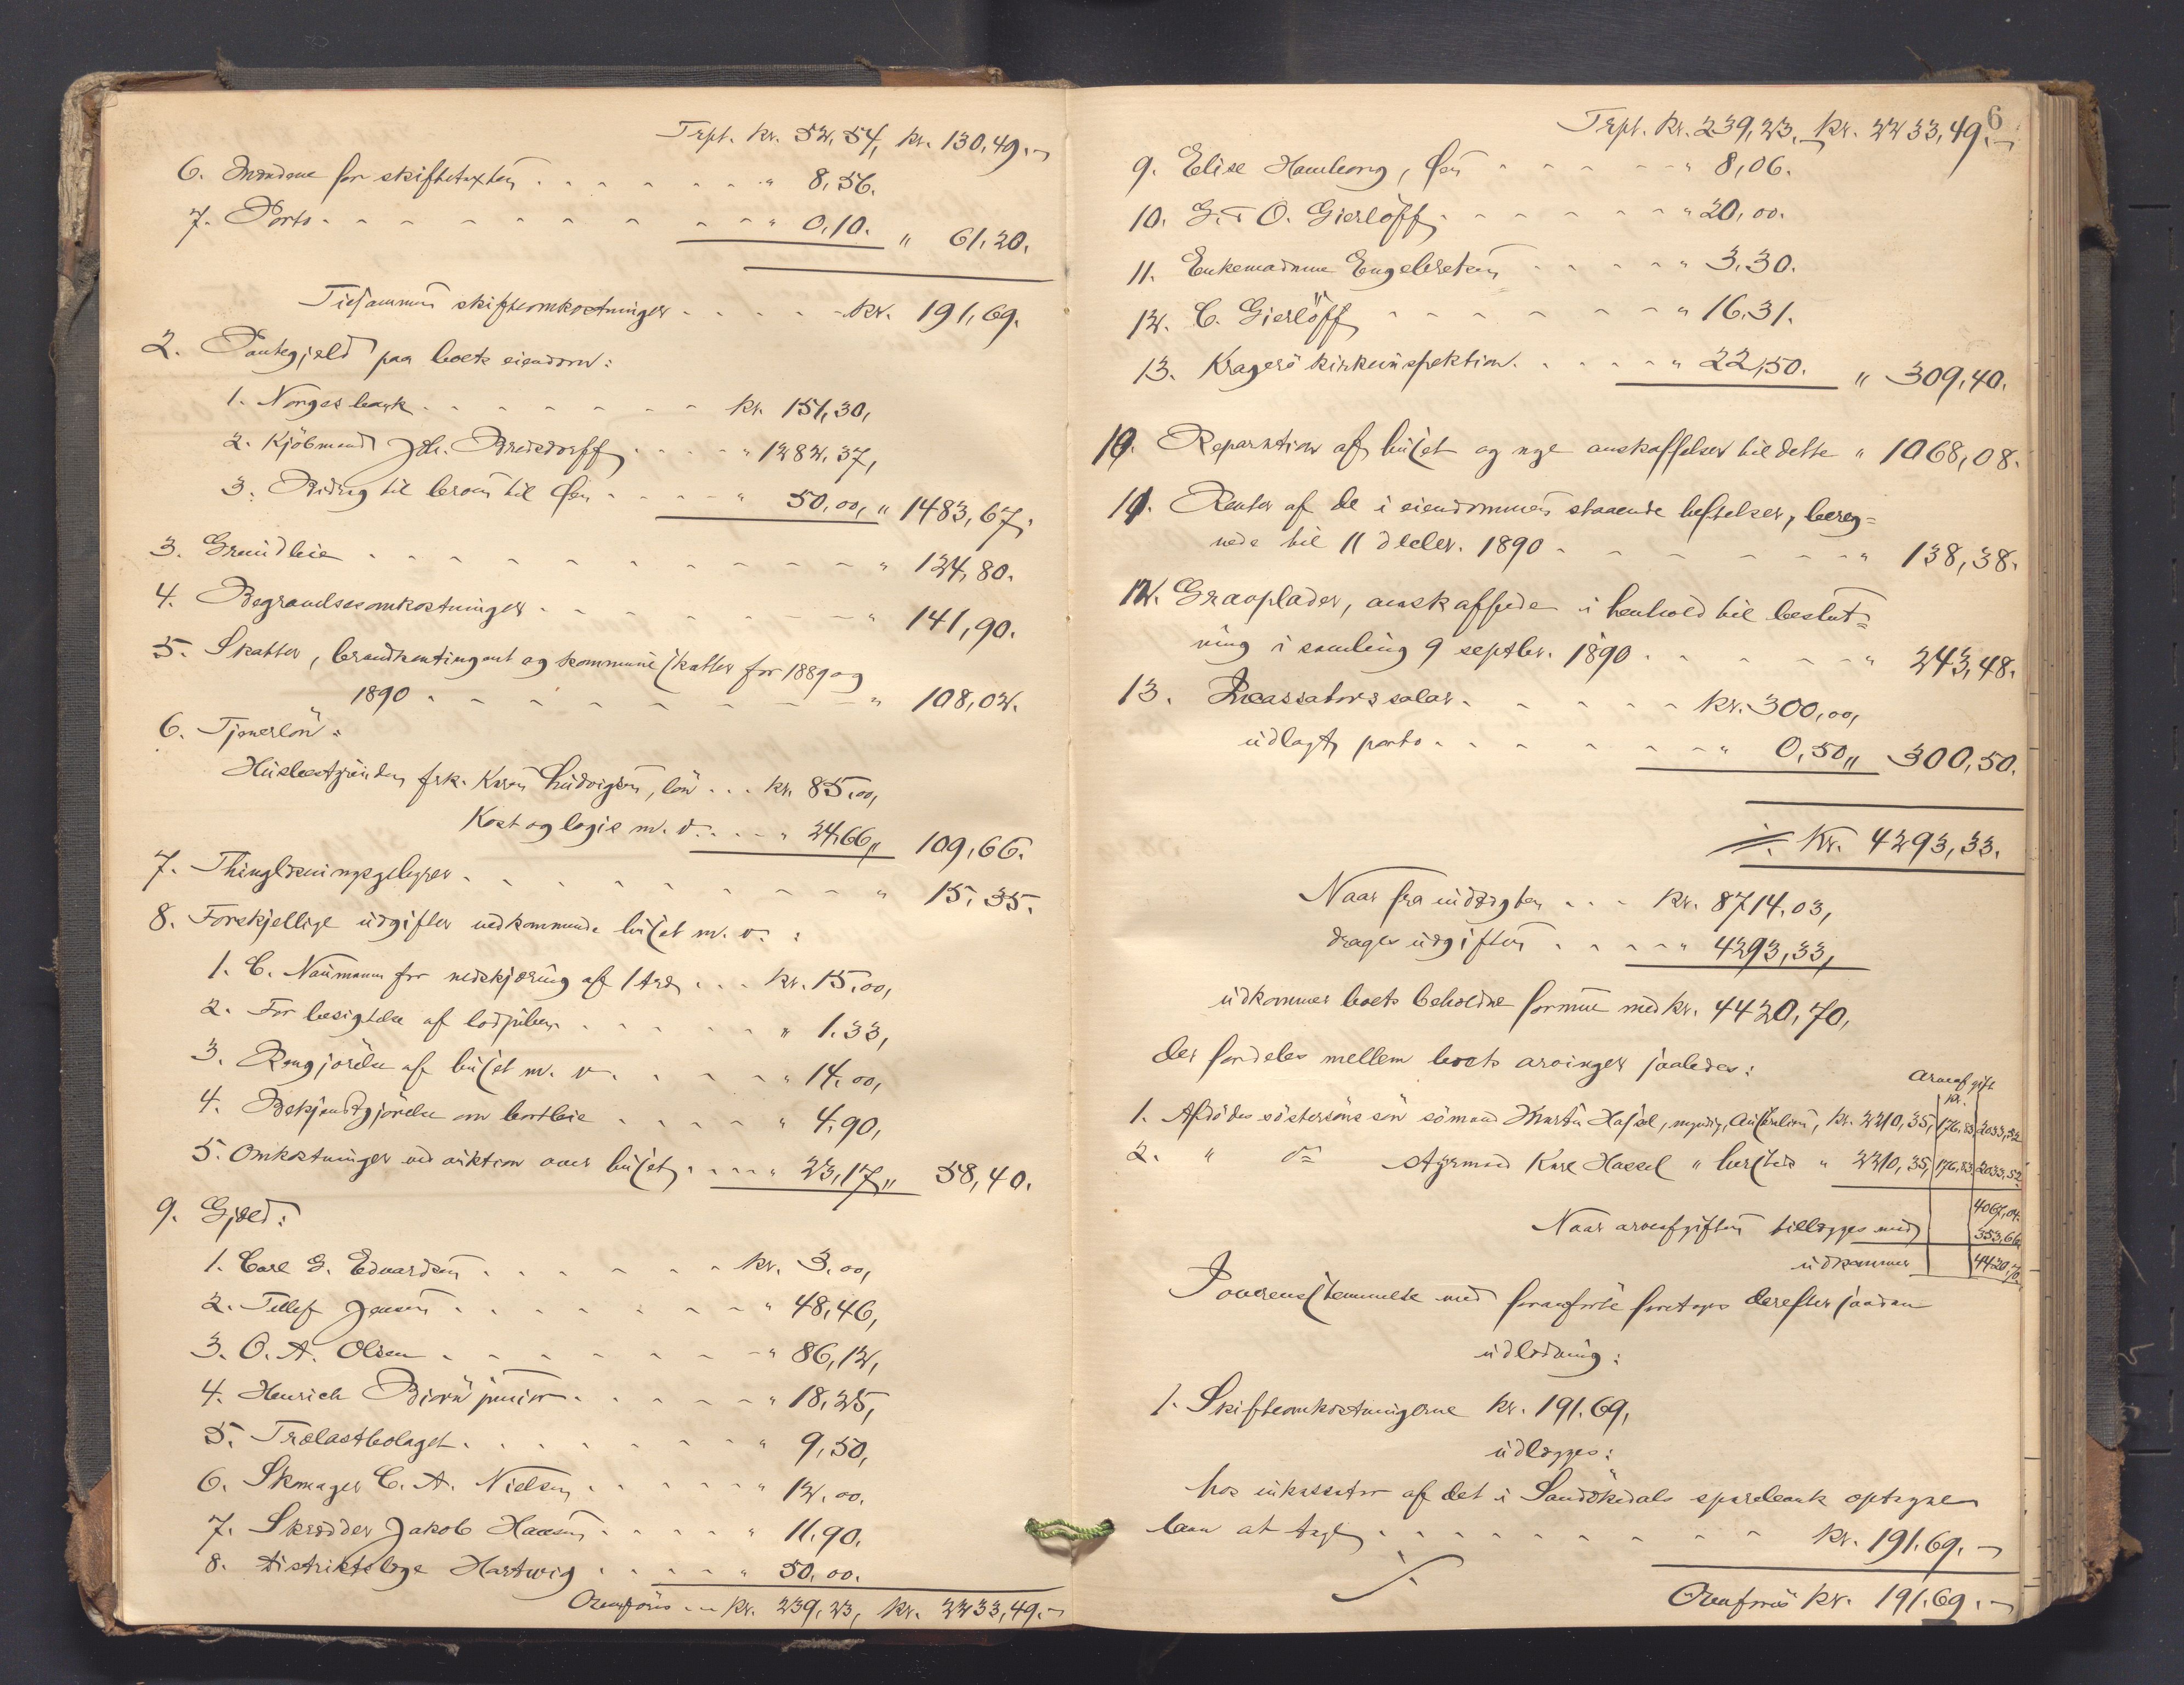 Trpt. kr. 52,54, kr. 130,49.
6. Mændene for skiftetaxten . . . " 8,56.
7. Porto . . . " 0,10. " 61,20.
Tilsammen skifteomkostninger . . . kr. 191,69.
2. Pantegjæld paa boets eiendom:
1. Norges bank . . . kr. 151,30,
2. Kjöbmand Joh. Bredsdorff . . . " 1282,37,
3. Bidrag til broen til Øen . . . " 50,00, " 1483,67.
3. Grundleie . . . " 124,80.
4. Begravelsesomkostninger . . . " 141,90.
5. Skatter, brandkontingent og kommuneskatter for 1889 og
1890 . . . " 108,02.
6. Tjenerlön:
Husbestyrinden frk. Karen Ludvigsen, lön . . . kr. 85,00,
Kost og logis m. v. . . . " 24,66, " 109,66.
7. Thinglæsningsgebyrer . . . " 15,35.
8. Forskjellige udgifter vedkommende huset m. v. :
1. C. Naumann for nedskjæring af 1 træ . . . kr. 15,00,
2. For besigtelse af lodpiben . . . " 1.33,
3. Rengjörelse af huset m. v. . . . " 14,00,
4. Bekjendtgjörelse om bortleie . . . " 4,90,
5. Omkostninger ved auktion over huset . . . " 23,17, " 58,40.
9. Gjæld:
1. Carl G. Edvardsen . . . kr. 3,00,
2. Tellef Jensen . . . " 48,46,
3. O. A. Olsen . . . " 86,12,
4. Henrich Biörn junior . . . " 18,25,
5. Trælastbolaget . . . " 9,50,
6. Skomager C. A. Nielsen . . . " 12,00.
7. Skrædder Jakob Hansen . . . " 11,90.
8. Distriktslæge Hartwig . . . " 50,00.
Overföres . . kr. 239,23, kr. 2233,49.
6
Trpt. kr. 239,23, kr. 2233,49.
9. Elise Hamborg, Øen . . . " 8,06.
10. G. & O. Gierlöff . . . " 20,00.
11. Enkemadame Engebretsen . . . " 3,30.
12. C. Gierlöff . . . " 16,31.
13. Kragerö kirkeinspektion . . . " 22,50. " 309,40.
10. Reparation af huset og nye anskaffelser til dette " 1068,08.
11. Renter af de i eiendommen staaende heftelser, bereg=
nede til 11 decbr. 1890 . . . " 138,38.
12. Gravplader, anskaffede i henhold til beslut=
ning i samling 9 septbr. 1890 . . . " 243,48.
13. Incassators salar . . . kr. 300,00,
udlagt porto . . . " 0,50, " 300,50.
Kr. 4293,33.
Naar fra indtægten . . . kr. 8714,03,
drages udgiften . . . " 4293,33,
udkommer boets beholdne formue med kr. 4420,70,
der fordeles mellem boets arvinger saaledes:
Arveafgift
kr.
1. Afdödes söstersöns sön sömand Martin Hassel, myndig, Australien, kr. 2210,35, 176,83 2033,52
2. " do styrmand Karl Hassel " hersteds " 2210,35, 176,83 2033,52
4067,04.
Naar arveafgiften tillægges med 353,66
udkommer 4420,70.
I overensstemmelse med foranförte foretages derefter saadan
udlodning:
1. Skifteomkostningerne kr. 191,69,
udlægges:
hos inkassator af det i Sandökedals sparebank optagne
laan at tage . . . kr. 191,69.
Overföres kr. 191,69.